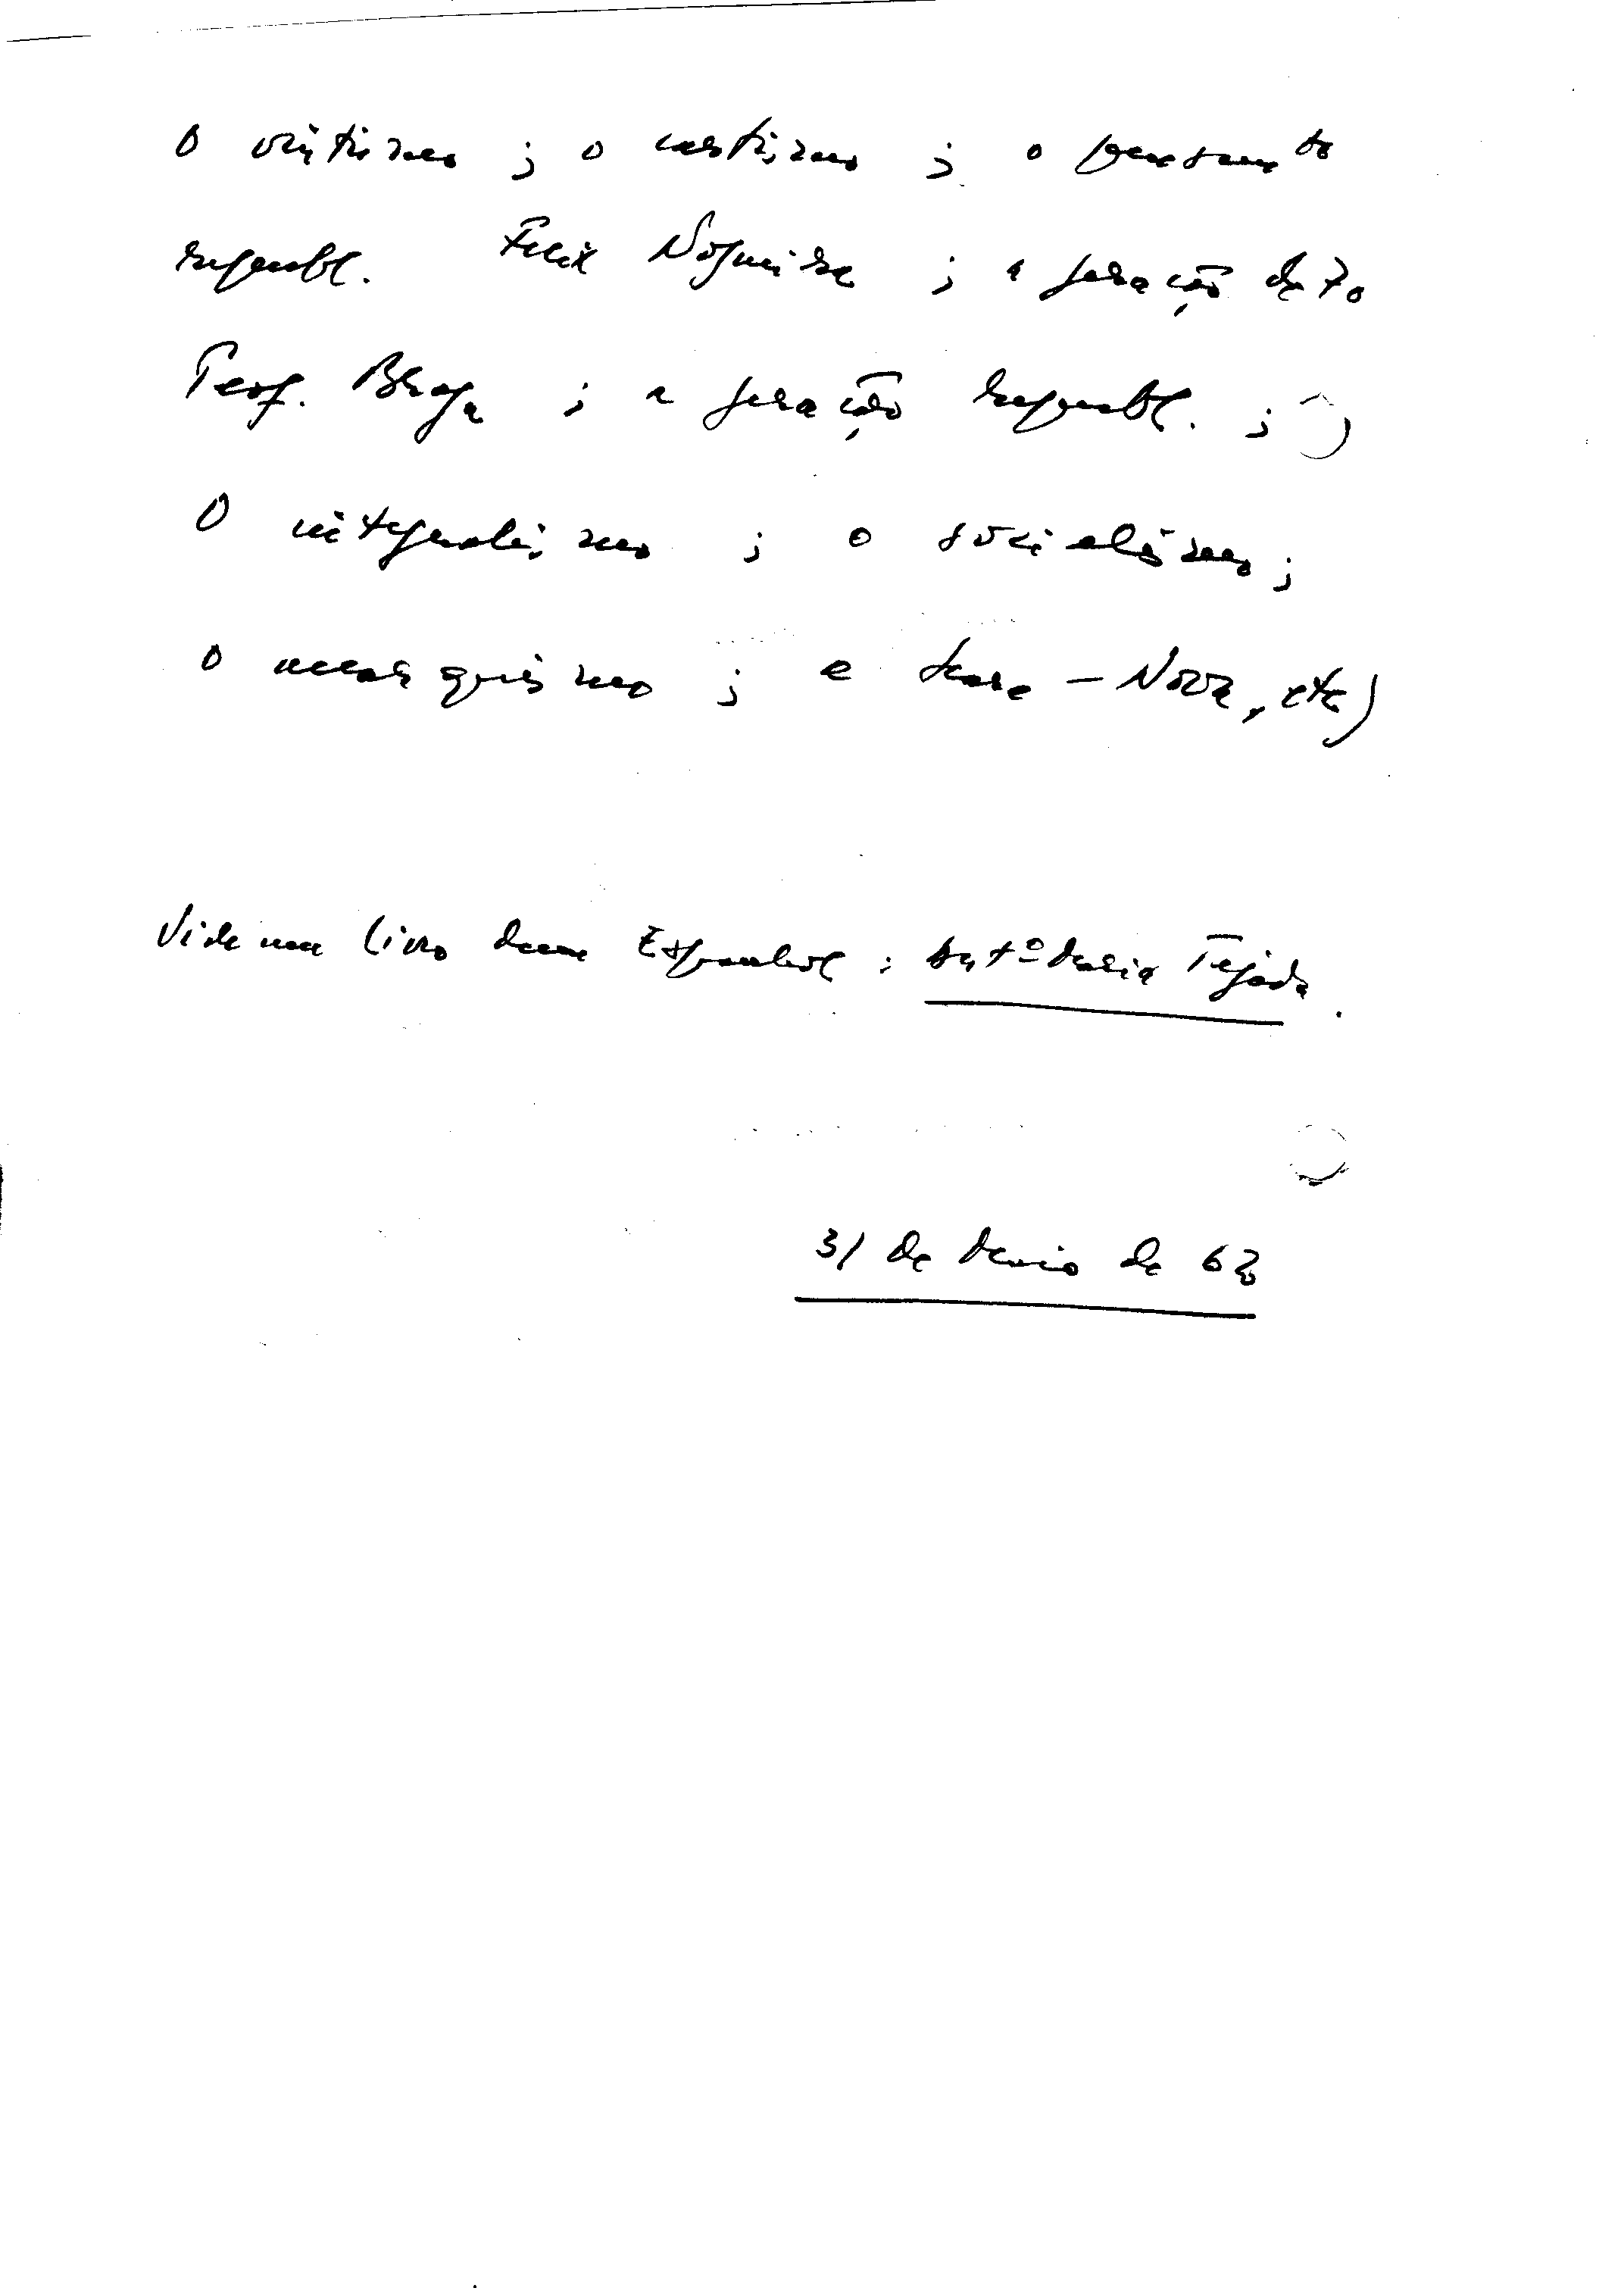 O vintismo ; o cartismo ; o pensamto
republ. Felix Nogueira ; a geração de 70
Teof. Braga ; a geração republ. ;
O integralismo ; o socialismo ;
o anarquismo ; a Seara-Nova, etc)
Vide um livro dum Espanhol : Antº Maria Tejada.
31 de Maio de 62